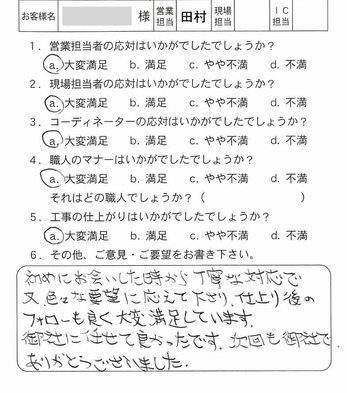 お客様名 様 営業担当 田村 現場担当 IC担当
1. 営業担当者の応対はいかがでしたでしょうか？
a. 大変満足 b. 満足 c. やや不満 d. 不満
2. 現場担当者の応対はいかがでしたでしょうか？
a. 大変満足 b. 満足 c. やや不満 d. 不満
3. コーディネーターの応対はいかがでしたでしょうか？
a. 大変満足 b. 満足 c. やや不満 d. 不満
4. 職人のマナーはいかがでしたでしょうか？
a. 大変満足 b. 満足 c. やや不満 d. 不満
それはどの職人でしょうか？（ ）
5. 工事の仕上がりはいかがでしたでしょうか？
a. 大変満足 b. 満足 c. やや不満 d. 不満
6. その他、ご意見・ご要望をお書き下さい。
初めにお会いした時から丁寧な対応で
又色々な要望に応えて下さり、仕上り後の
フォローも良く大変満足しています。
御社に任せて良かったです。次回も御社で
ありがとうございました.